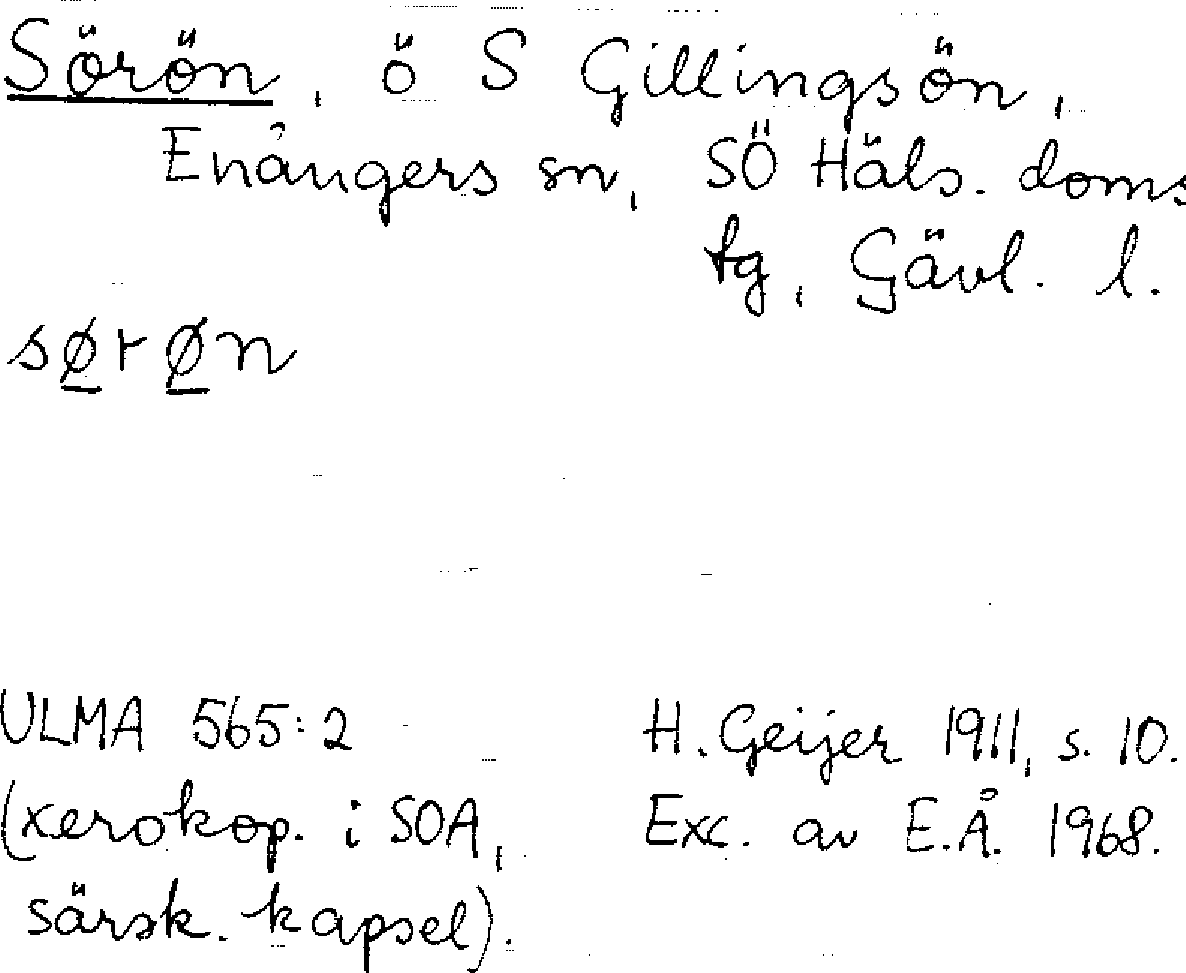 Sörön, ö S Gillingsön,
Enångers sn, SÖ Häls. doms
tg, Gävl. l.
sø̲rø̲n
ULMA 565:2
(xerokop. i SOA,
särsk. kapsel).
H. Geijer 1911, s. 10.
Exc. av E.Å. 1968.